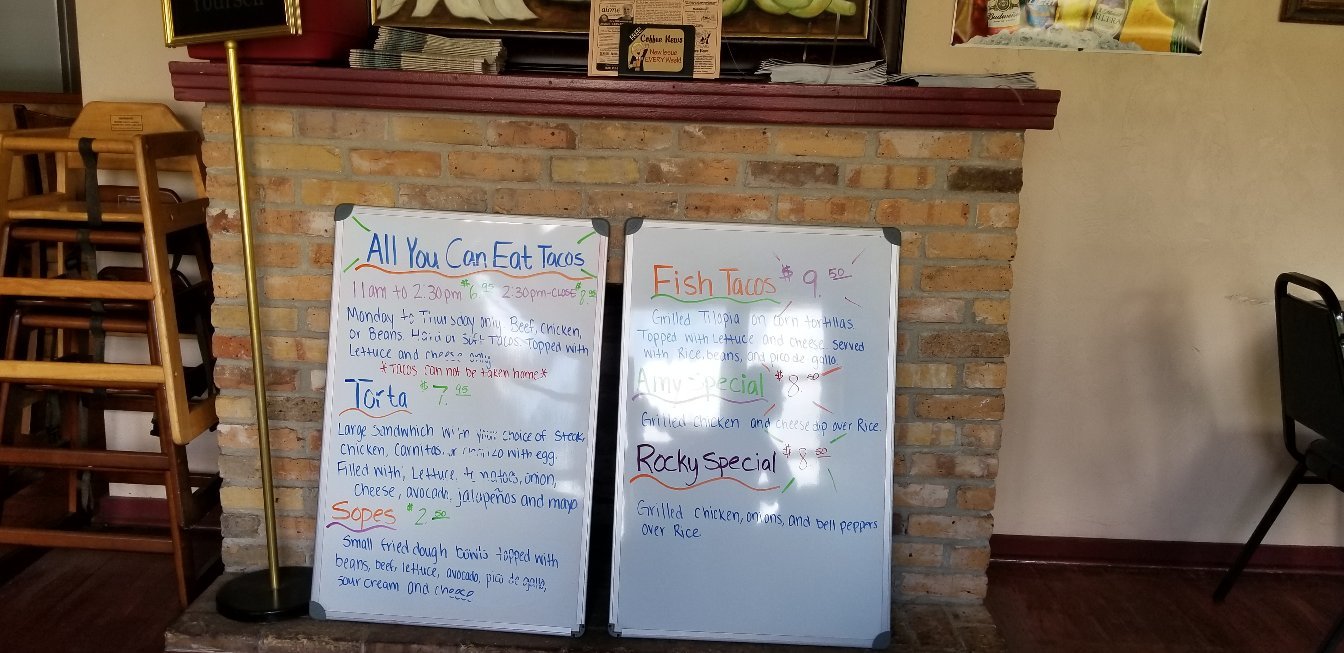 Yourself
alone
FREE!
Coffee News
New Issue
EVERY Week!
Budweiser
ULTRA
All You Can Eat Tacos
11am to 2:30pm $6.95 2:30pm-close $8.95
Monday to Thursday only Beef, chicken,
or Beans Hard or Soft Tacos. Topped with
Lettuce and cheese only
*Tacos can not be taken home*
Torta $7.95
Large Sandwhich with your choice of Steak,
chicken, Carnitas, or chorizo with egg.
Filled with, Lettuce, tomatoes, onion,
cheese, avocado, jalapeños and mayo
Sopes $2.50
Small fried dough bowls topped with
beans, beef, lettuce, avocado, pico de gallo,
sour cream and cheese
Fish Tacos $9.50
Grilled Tilapia on corn tortillas
Topped with Lettuce and cheese served
with Rice, beans, and pico de gallo
Amy Special $8.50
Grilled chicken and cheese dip over Rice.
Rocky Special $8.50
Grilled chicken, onions, and bell peppers
over Rice